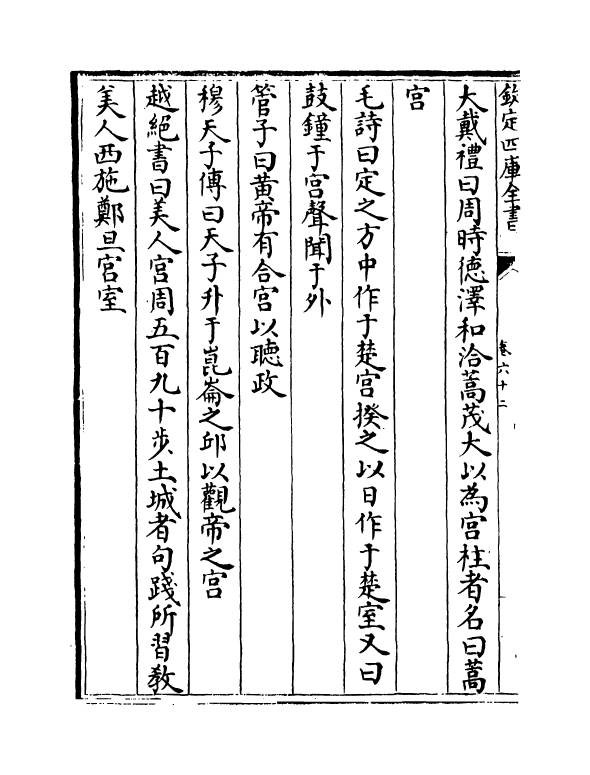 欽定四庫全書
卷六十二
大戴禮曰周時徳澤和洽蒿茂大以為宫柱者名曰蒿
宫
毛詩曰定之方中作于楚宫揆之以日作于楚室又曰
鼓鐘于宫聲聞于外
管子曰黄帝有合宫以聽政
穆天子傳曰天子升于崑崙之邱以觀帝之宫
越絶書曰美人宫周五百九十歩土城者句踐所習教
美人西施鄭旦宫室